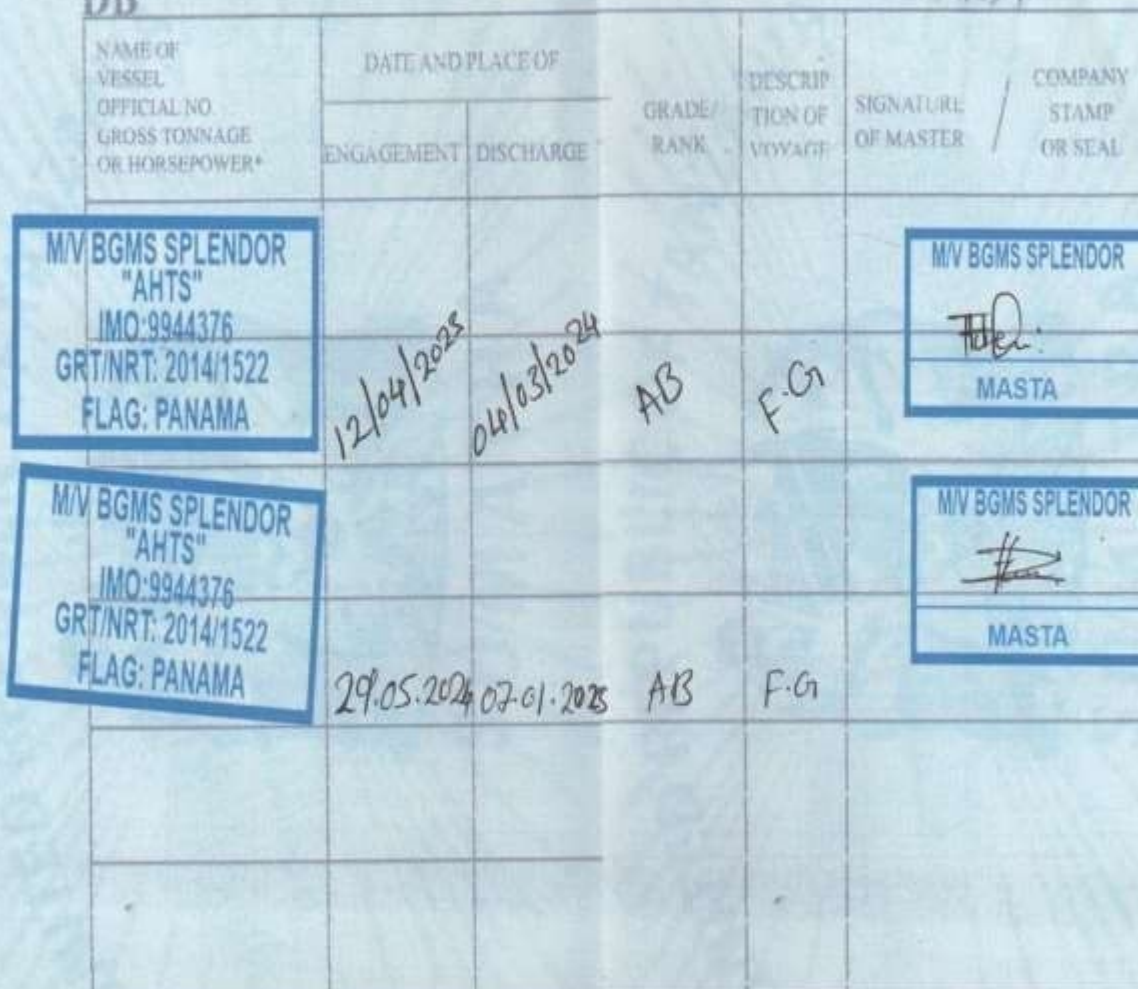 DB
NAME OF
VESSEL
OFFICIAL NO.
GROSS TONNAGE
OR HORSEPOWER*
DATE AND PLACE OF
ENGAGEMENT
DISCHARGE
GRADE/
RANK
DESCRIP
TION OF
VOYAGE
SIGNATURE
OF MASTER
/
COMPANY
STAMP
OR SEAL
M/V BGMS SPLENDOR
"AHTS"
IMO:9944376
GRT/NRT: 2014/1522
FLAG: PANAMA
12/04/2023
04/03/2024
AB
F.G
M/V BGMS SPLENDOR
MASTA
M/V BGMS SPLENDOR
"AHTS"
IMO:9944376
GRT/NRT: 2014/1522
FLAG: PANAMA
29.05.2024
07.01.2025
AB
F.G
M/V BGMS SPLENDOR
MASTA